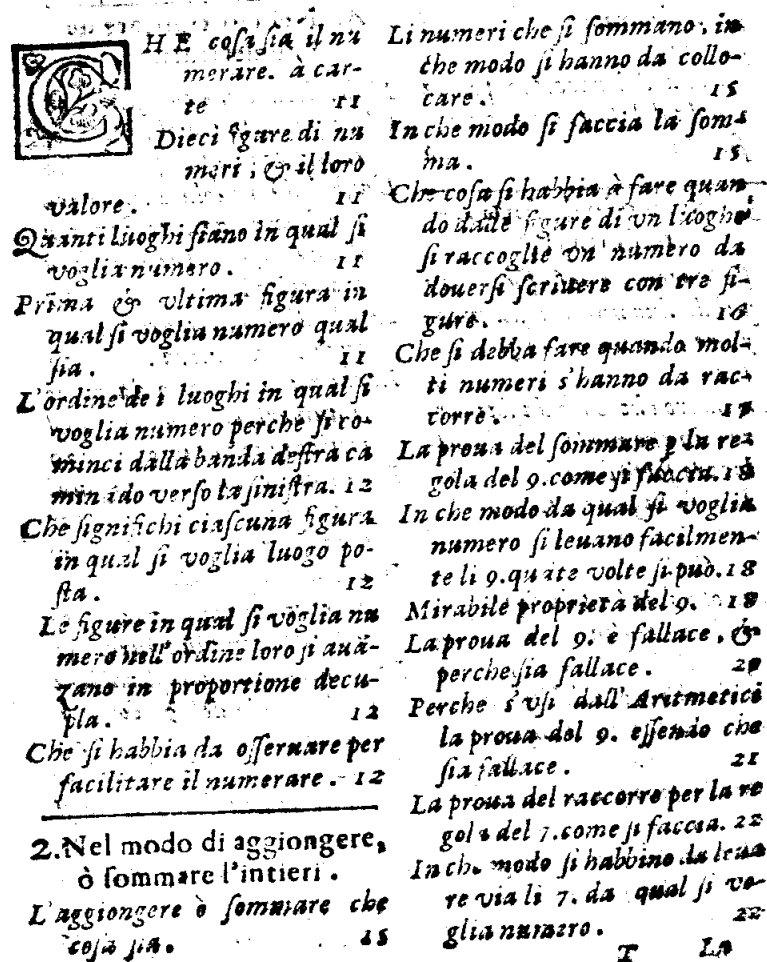 CHE coſa ſia il nu
merare. à car-
te 11
Dieci figure di nu
meri, & il loro
valore. 11
Quanti luoghi ſiano in qual ſi
voglia numero. 11
Prima & vltima figura in
qual ſi voglia numero qual
ſia. 11
L'ordine de i luoghi in qual ſi
voglia numero perche ſi co-
minci dalla banda deſtra ca
minãdo verſo la ſiniſtra. 12
Che ſignifichi ciaſcuna figura
in qual ſi voglia luogo po-
ſta. 12
Le figure in qual ſi voglia nu
mero nell'ordine loro ſi auã-
zano in proportione decu-
pla. 12
Che ſi habbia da oſſeruare per
facilitare il numerare. 12
2. Nel modo di aggiongere,
ò ſommare l'intieri.
L'aggiongere ò ſommare che
coſa ſia. 15
Li numeri che ſi ſommano, in
che modo ſi hanno da collo-
care. 15
In che modo ſi faccia la ſom-
ma. 15
Che coſa ſi habbia à fare quan-
do dalle figure di vn luogho
ſi raccoglie vn' numero da
douerſi ſcriuere con tre fi-
gure. 16
Che ſi debba fare quando mol-
ti numeri s'hanno da rac-
corre. 17
La proua del ſommare p la re-
gola del 9. come ſi faccia. 18
In che modo da qual ſi voglia
numero ſi leuano facilmen-
te li 9. quãte volte ſi può. 18
Mirabile proprietà del 9. 18
La proua del 9. è fallace, &
perche ſia fallace. 20
Perche s'vſi dall'Aritmetici
la proua del 9. eſſendo che
ſia fallace. 21
La proua del raccorre per la re
gola del 7. come ſi faccia. 22
In che modo ſi habbino da leua
re via li 7. da qual ſi vo-
glia numero. 22
T La